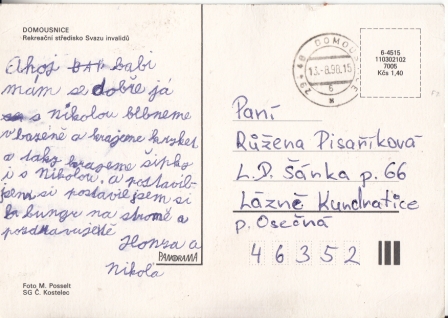 DOMOUSNICE
Rekreační středisko Svazu invalidů
Ahoj babi
mám se dobře já
s Nikolou blbneme
v bazéně a hrajeme kriket
a taky hrajeme šipky
i s Nikolou, a postavil-
jsem si postavil jsem si
bungr na stromě a
pozdravuješte
Honza a
Nikola
PANORAMA
Foto M. Posselt
SG Č. Kostelec
29 49 DOMOUSNICE
13.-8.90.15
6
M
6-4515
110302102
7005
Kčs 1,40
Paní
Růžena Pisaříková
L.D. Šánka p. 66
Lázně Kundratice
p. Osečná
46352